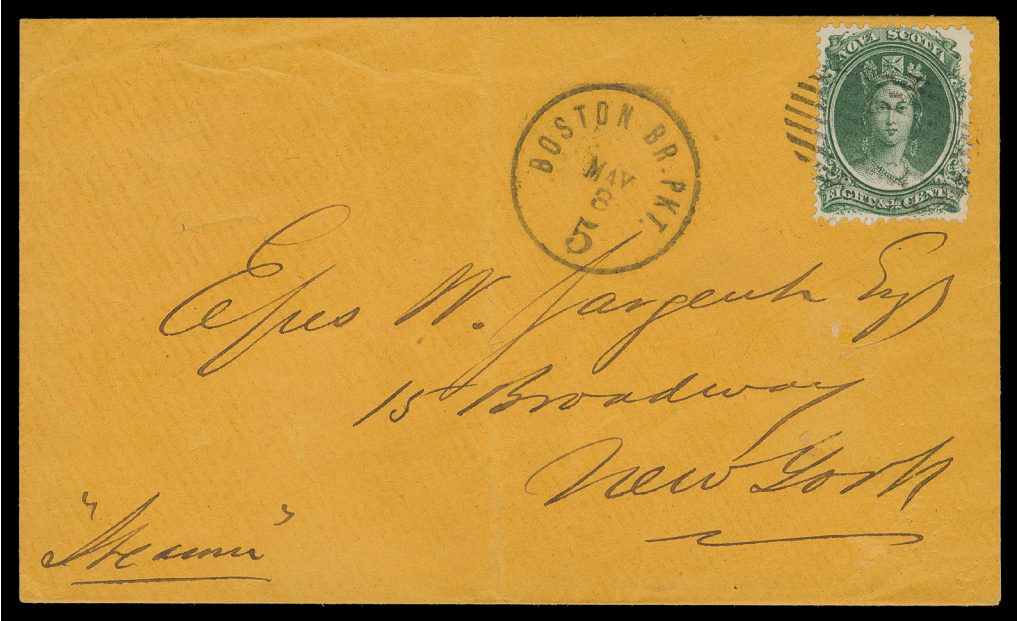 NOVA SCOTIA
EIGHT & ½ CENTS
BOSTON BR. PKT.
MAY
8
5
Epes W. Sargent Esqr
15 Broadway
New York
"Steamer"